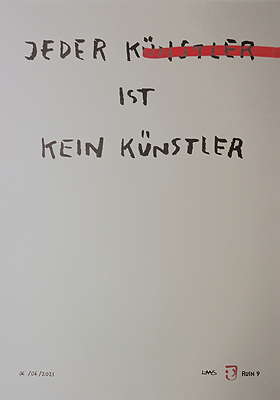 JEDER KÜNSTLER
IST
KEIN KÜNSTLER
06/06/2021
UMS
RUIN 9